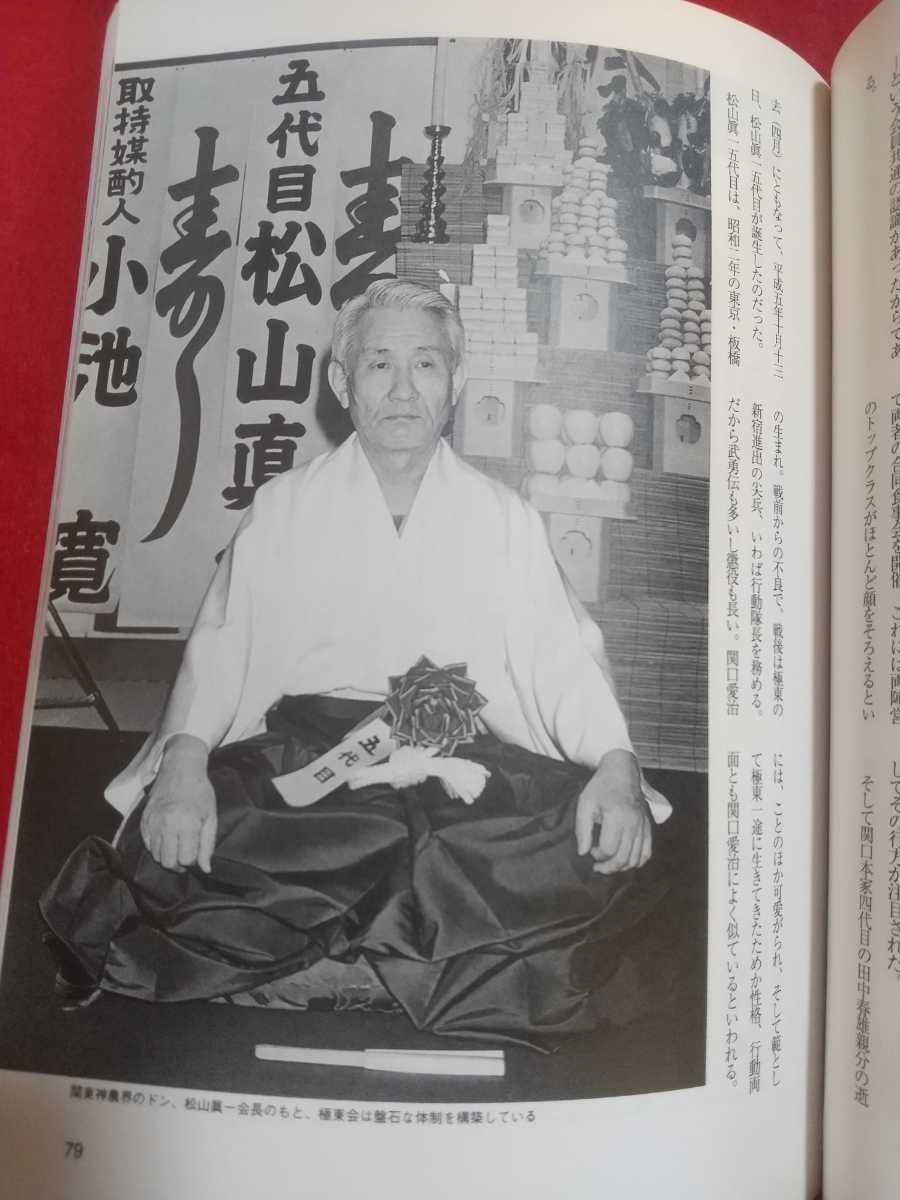 寿
五代目松山眞一
寿の
取持媒酌人 小池 寛
五代目
去(四月)にともなって、平成五年十月十三
日、松山眞一五代目が誕生したのだった。
松山眞一五代目は、昭和二年の東京・板橋
の生まれ。戦前からの不良で、戦後は極東の
新宿進出の尖兵、いわば行動隊長を務める。
だから武勇伝も多いし懲役も長い。関口愛治
には、ことのほか可愛がられ、そして範とし
て極東一途に生きてきたためか性格、行動両
面とも関口愛治によく似ているといわれる。
関東神農界のドン、松山眞一会長のもと、極東会は盤石な体制を構築している
79
あ。
で両者の合同食事会を開催 これには両陣営
のトップクラスがほとんど顔をそろえるとい
してその行方が注目された。
そして関口本家四代目の田中春雄親分の逝